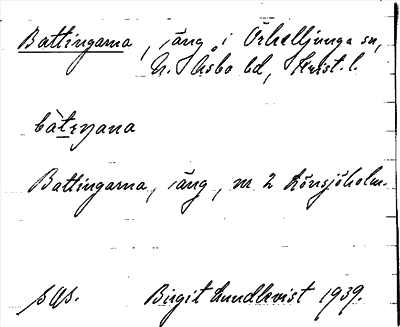 Battingarna, äng i Örkelljunga sn,
N. Åsbo hd, Krist. l.
bàtiŋana
Battingarna, äng, nr 2 Rönsjöholm.
SOS. Birgit Lundkvist 1939.